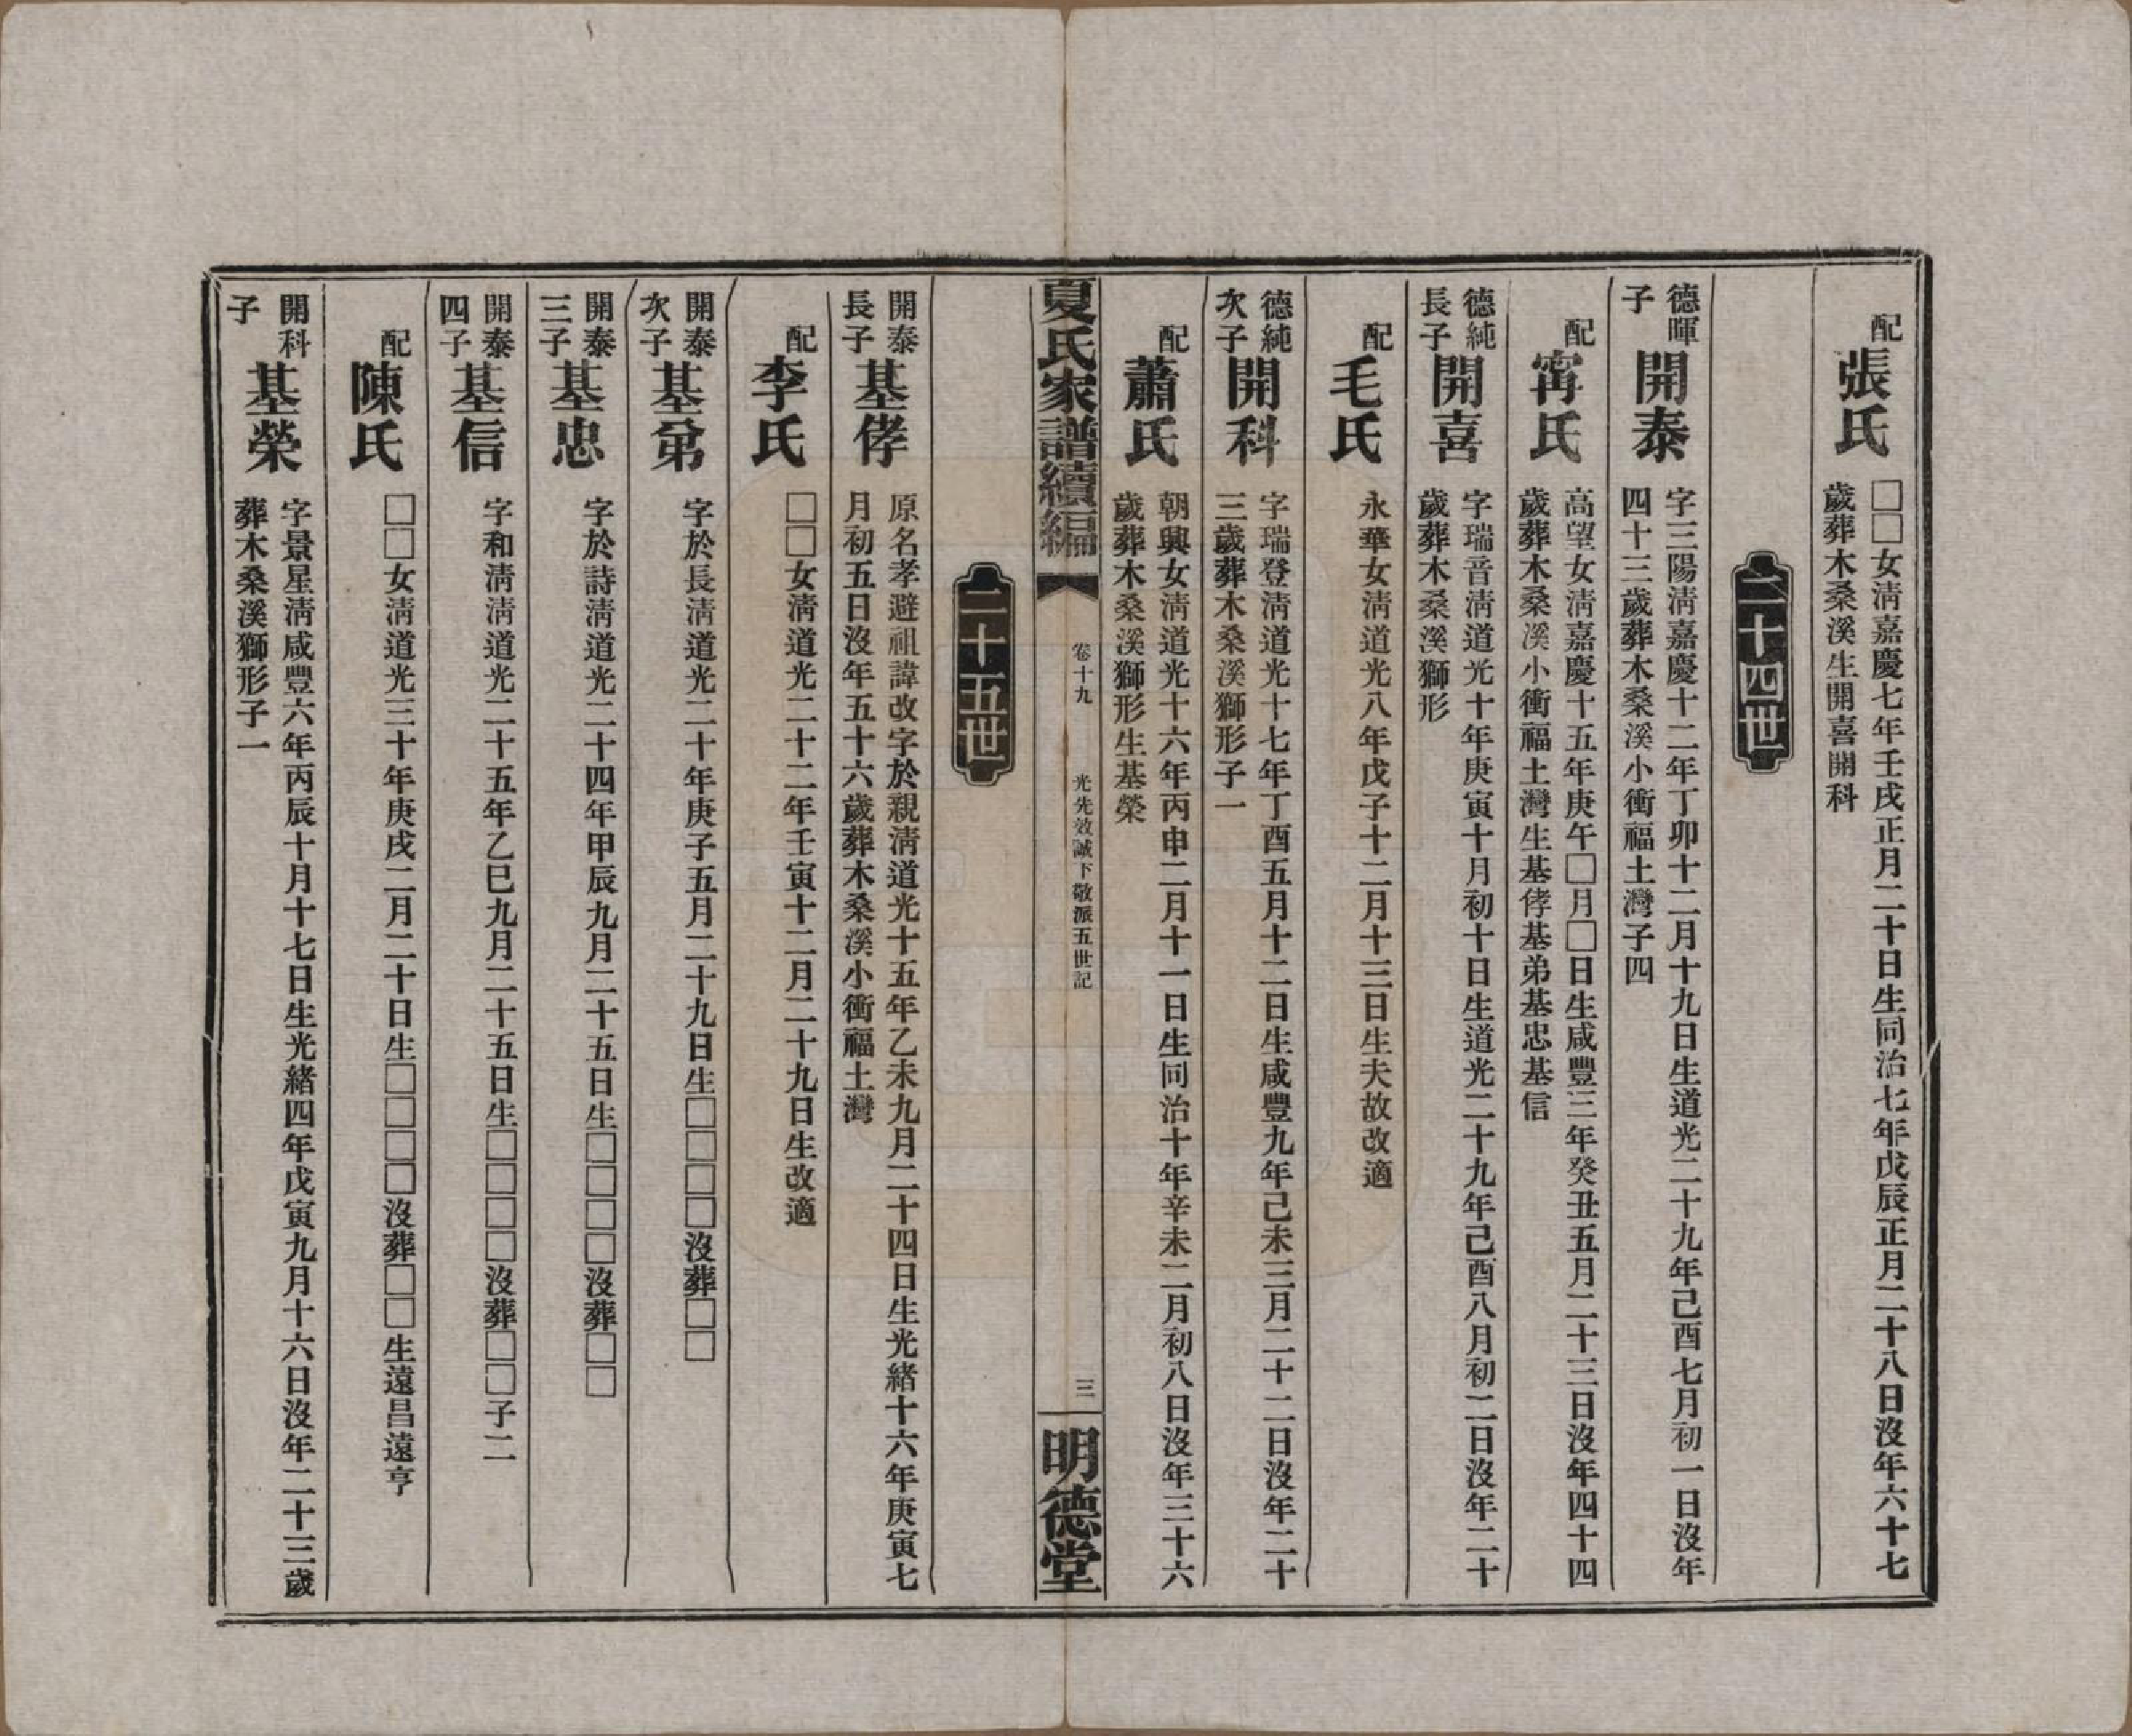 配
張氏
□□女淸嘉慶七年壬戌正月二十日生同治七年戊辰正月二十八日沒年六十七
歲葬木桑溪生開喜開科
二十四世
德暉
子
開泰
字三陽淸嘉慶十二年丁卯十二月十九日生道光二十九年己酉七月初一日沒年
四十三歲葬木桑溪小衝福土灣子四
配
甯氏
高望女淸嘉慶十五年庚午□月□日生咸豐三年癸丑五月二十三日沒年四十四
歲葬木桑溪小衝福土灣生基侾基弟基忠基信
德純
長子
開喜
字瑞音淸道光十年庚寅十月初十日生道光二十九年己酉八月初二日沒年二十
歲葬木桑溪獅形
配
毛氏
永華女淸道光八年戊子十二月十三日生夫故改適
德純
次子
開科
字瑞登淸道光十七年丁酉五月十二日生咸豐九年己未三月二十二日沒年二十
三歲葬木桑溪獅形子一
配
蕭氏
朝興女淸道光十六年丙申二月十一日生同治十年辛未二月初八日沒年三十六
歲葬木桑溪獅形生基榮
夏氏家譜續編
卷十九
光先效誠下敬派五世記
三
明德堂
二十五世
開泰
長子
基侾
原名孝避祖諱改字於親淸道光十五年乙未九月二十四日生光緒十六年庚寅七
月初五日沒年五十六歲葬木桑溪小衝福土灣
配
李氏
□□女淸道光二十二年壬寅十二月二十九日生改適
開泰
次子
基弟
字於長淸道光二十年庚子五月二十九日生□□□□沒葬□□
開泰
三子
基忠
字於詩淸道光二十四年甲辰九月二十五日生□□□□沒葬□□
開泰
四子
基信
字和淸淸道光二十五年乙巳九月二十五日生□□□□沒葬□□子二
配
陳氏
□□女淸道光三十年庚戌二月二十日生□□□□沒葬□□生遠昌遠亨
開科
子
基榮
字景星淸咸豐六年丙辰十月十七日生光緒四年戊寅九月十六日沒年二十三歲
葬木桑溪獅形子一